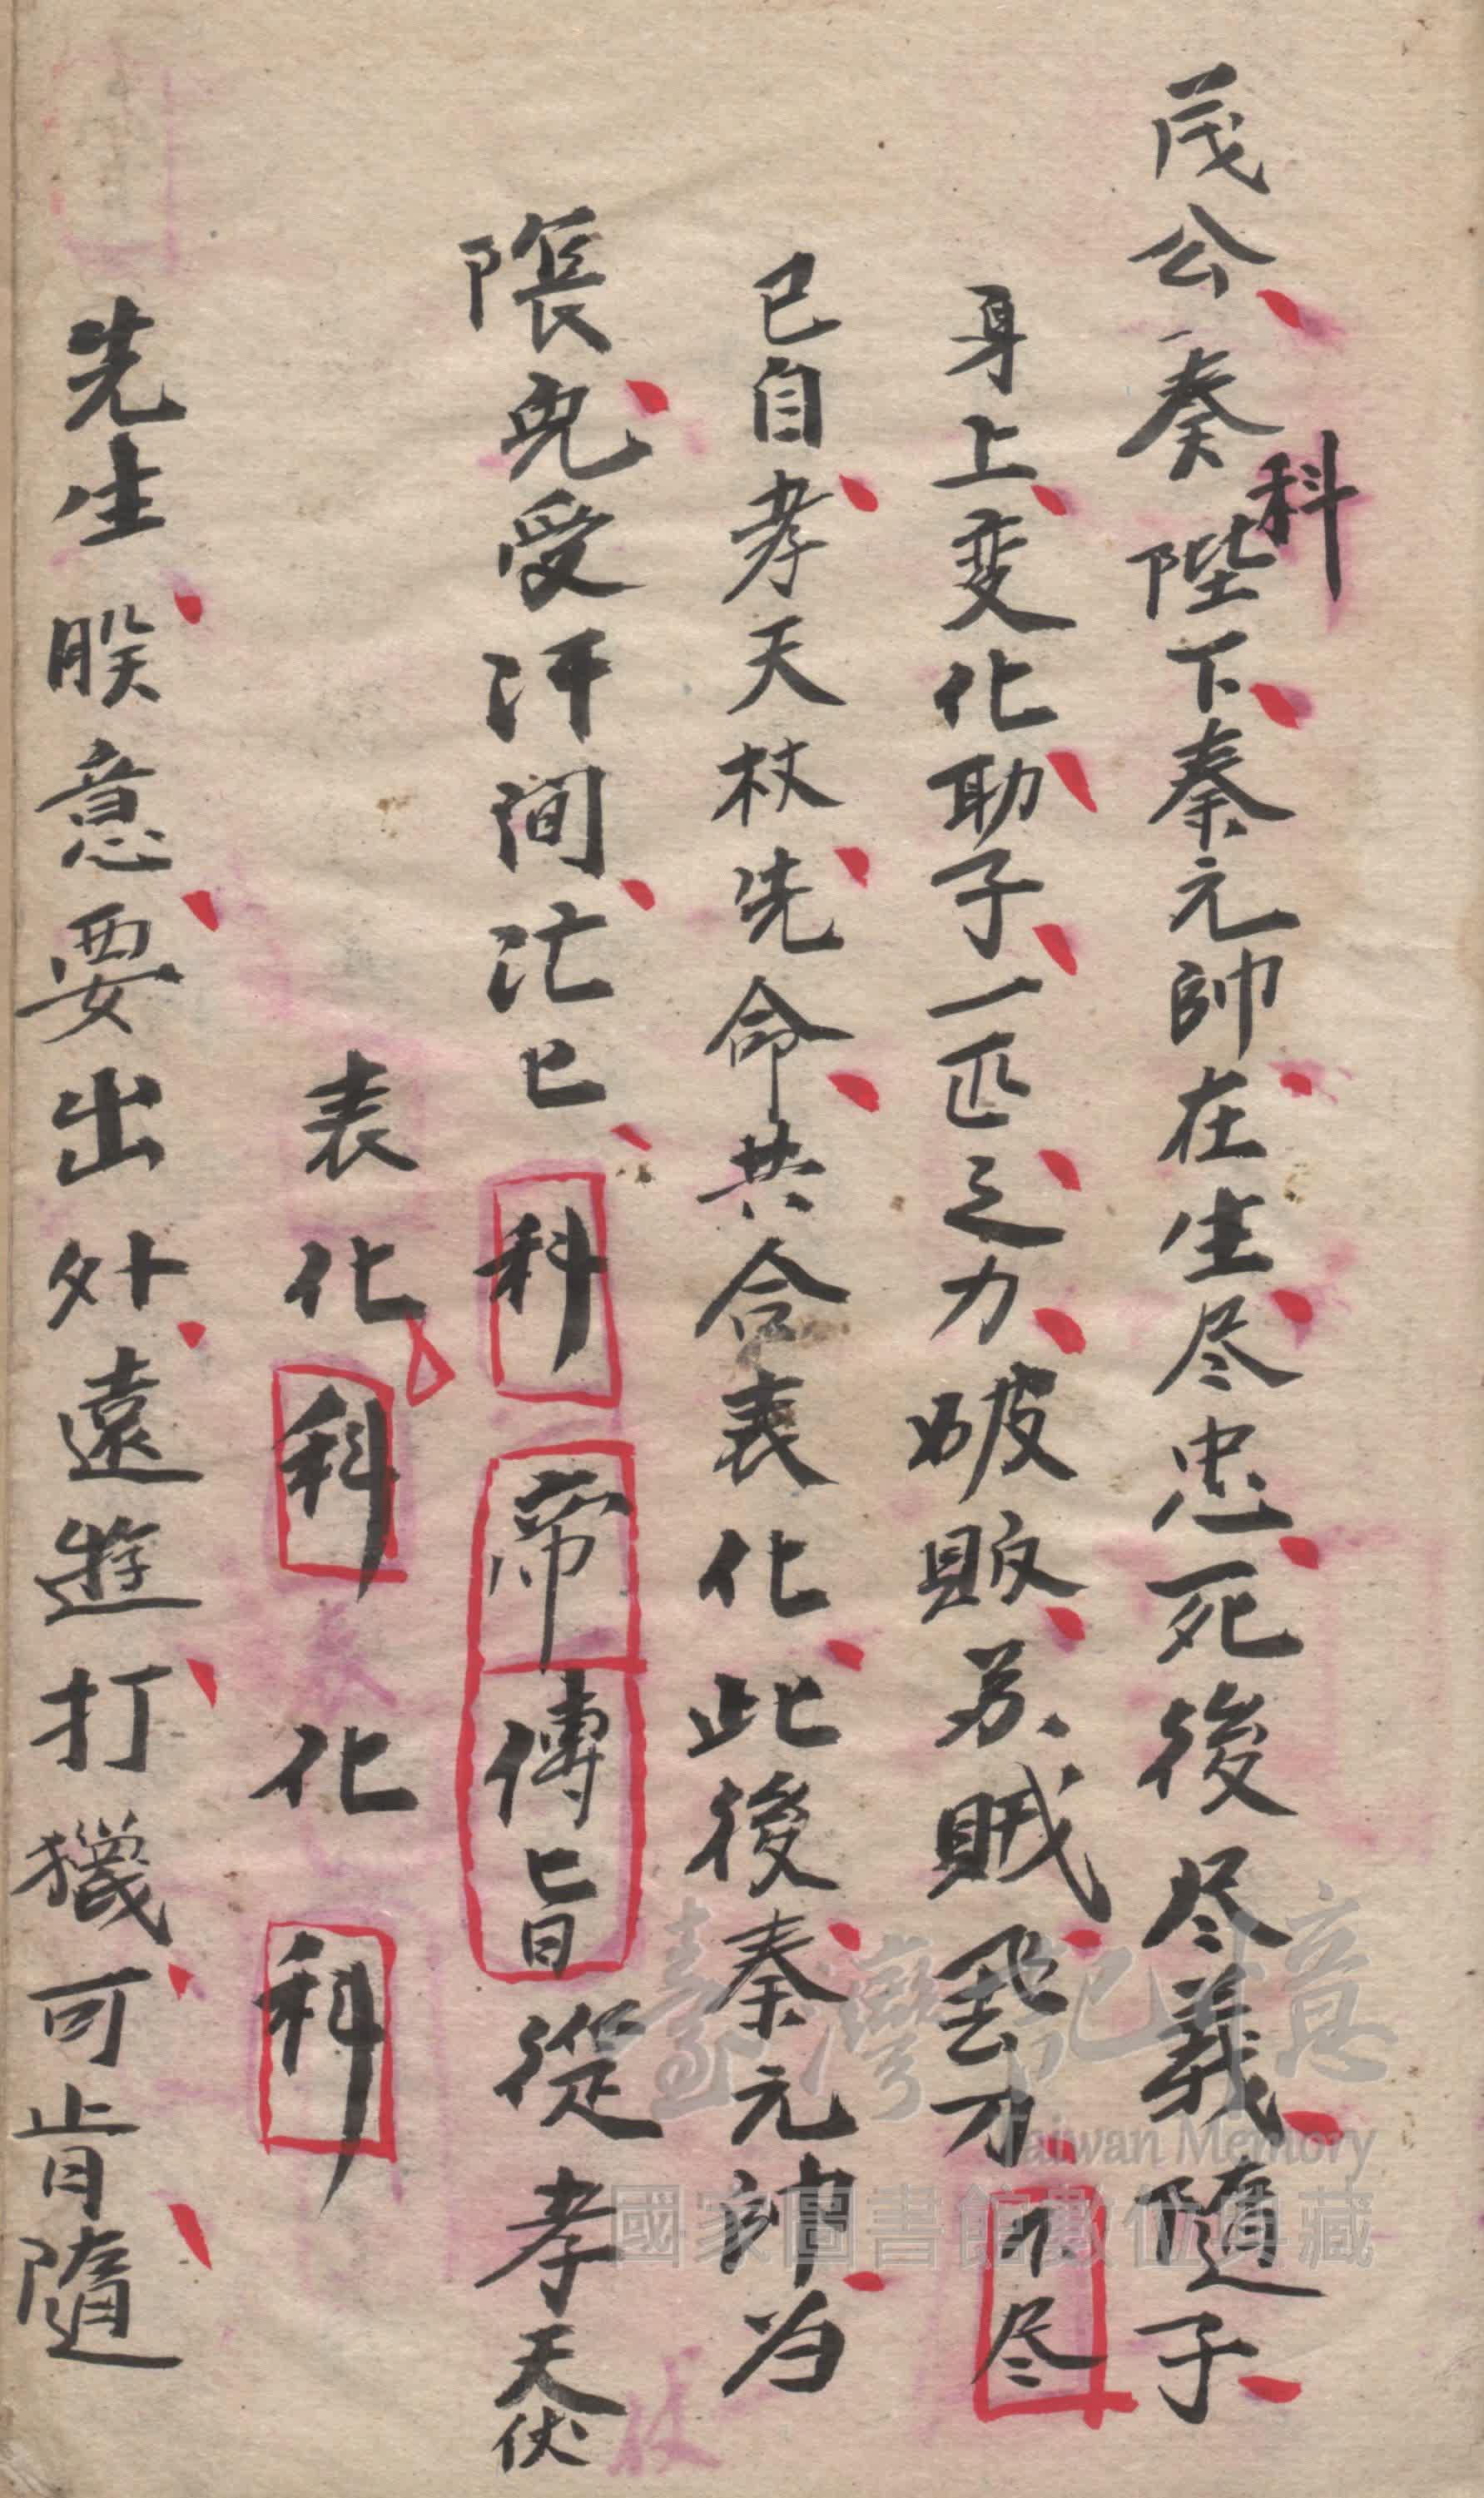 茂公奏科陛下秦元帥在生尽忠死後尽義隨子
身上变化助子一匹之力破販苏賊雲刀不尽
已自孝天杖先命共合表化此後秦元帥為
限児受汗間茫已科帝傳旨從孝天伏
表化科化科
先生朕意要出外遠遊打獵可肯隨
臺灣記憶
Taiwan Memory
國家圖書館數位典藏